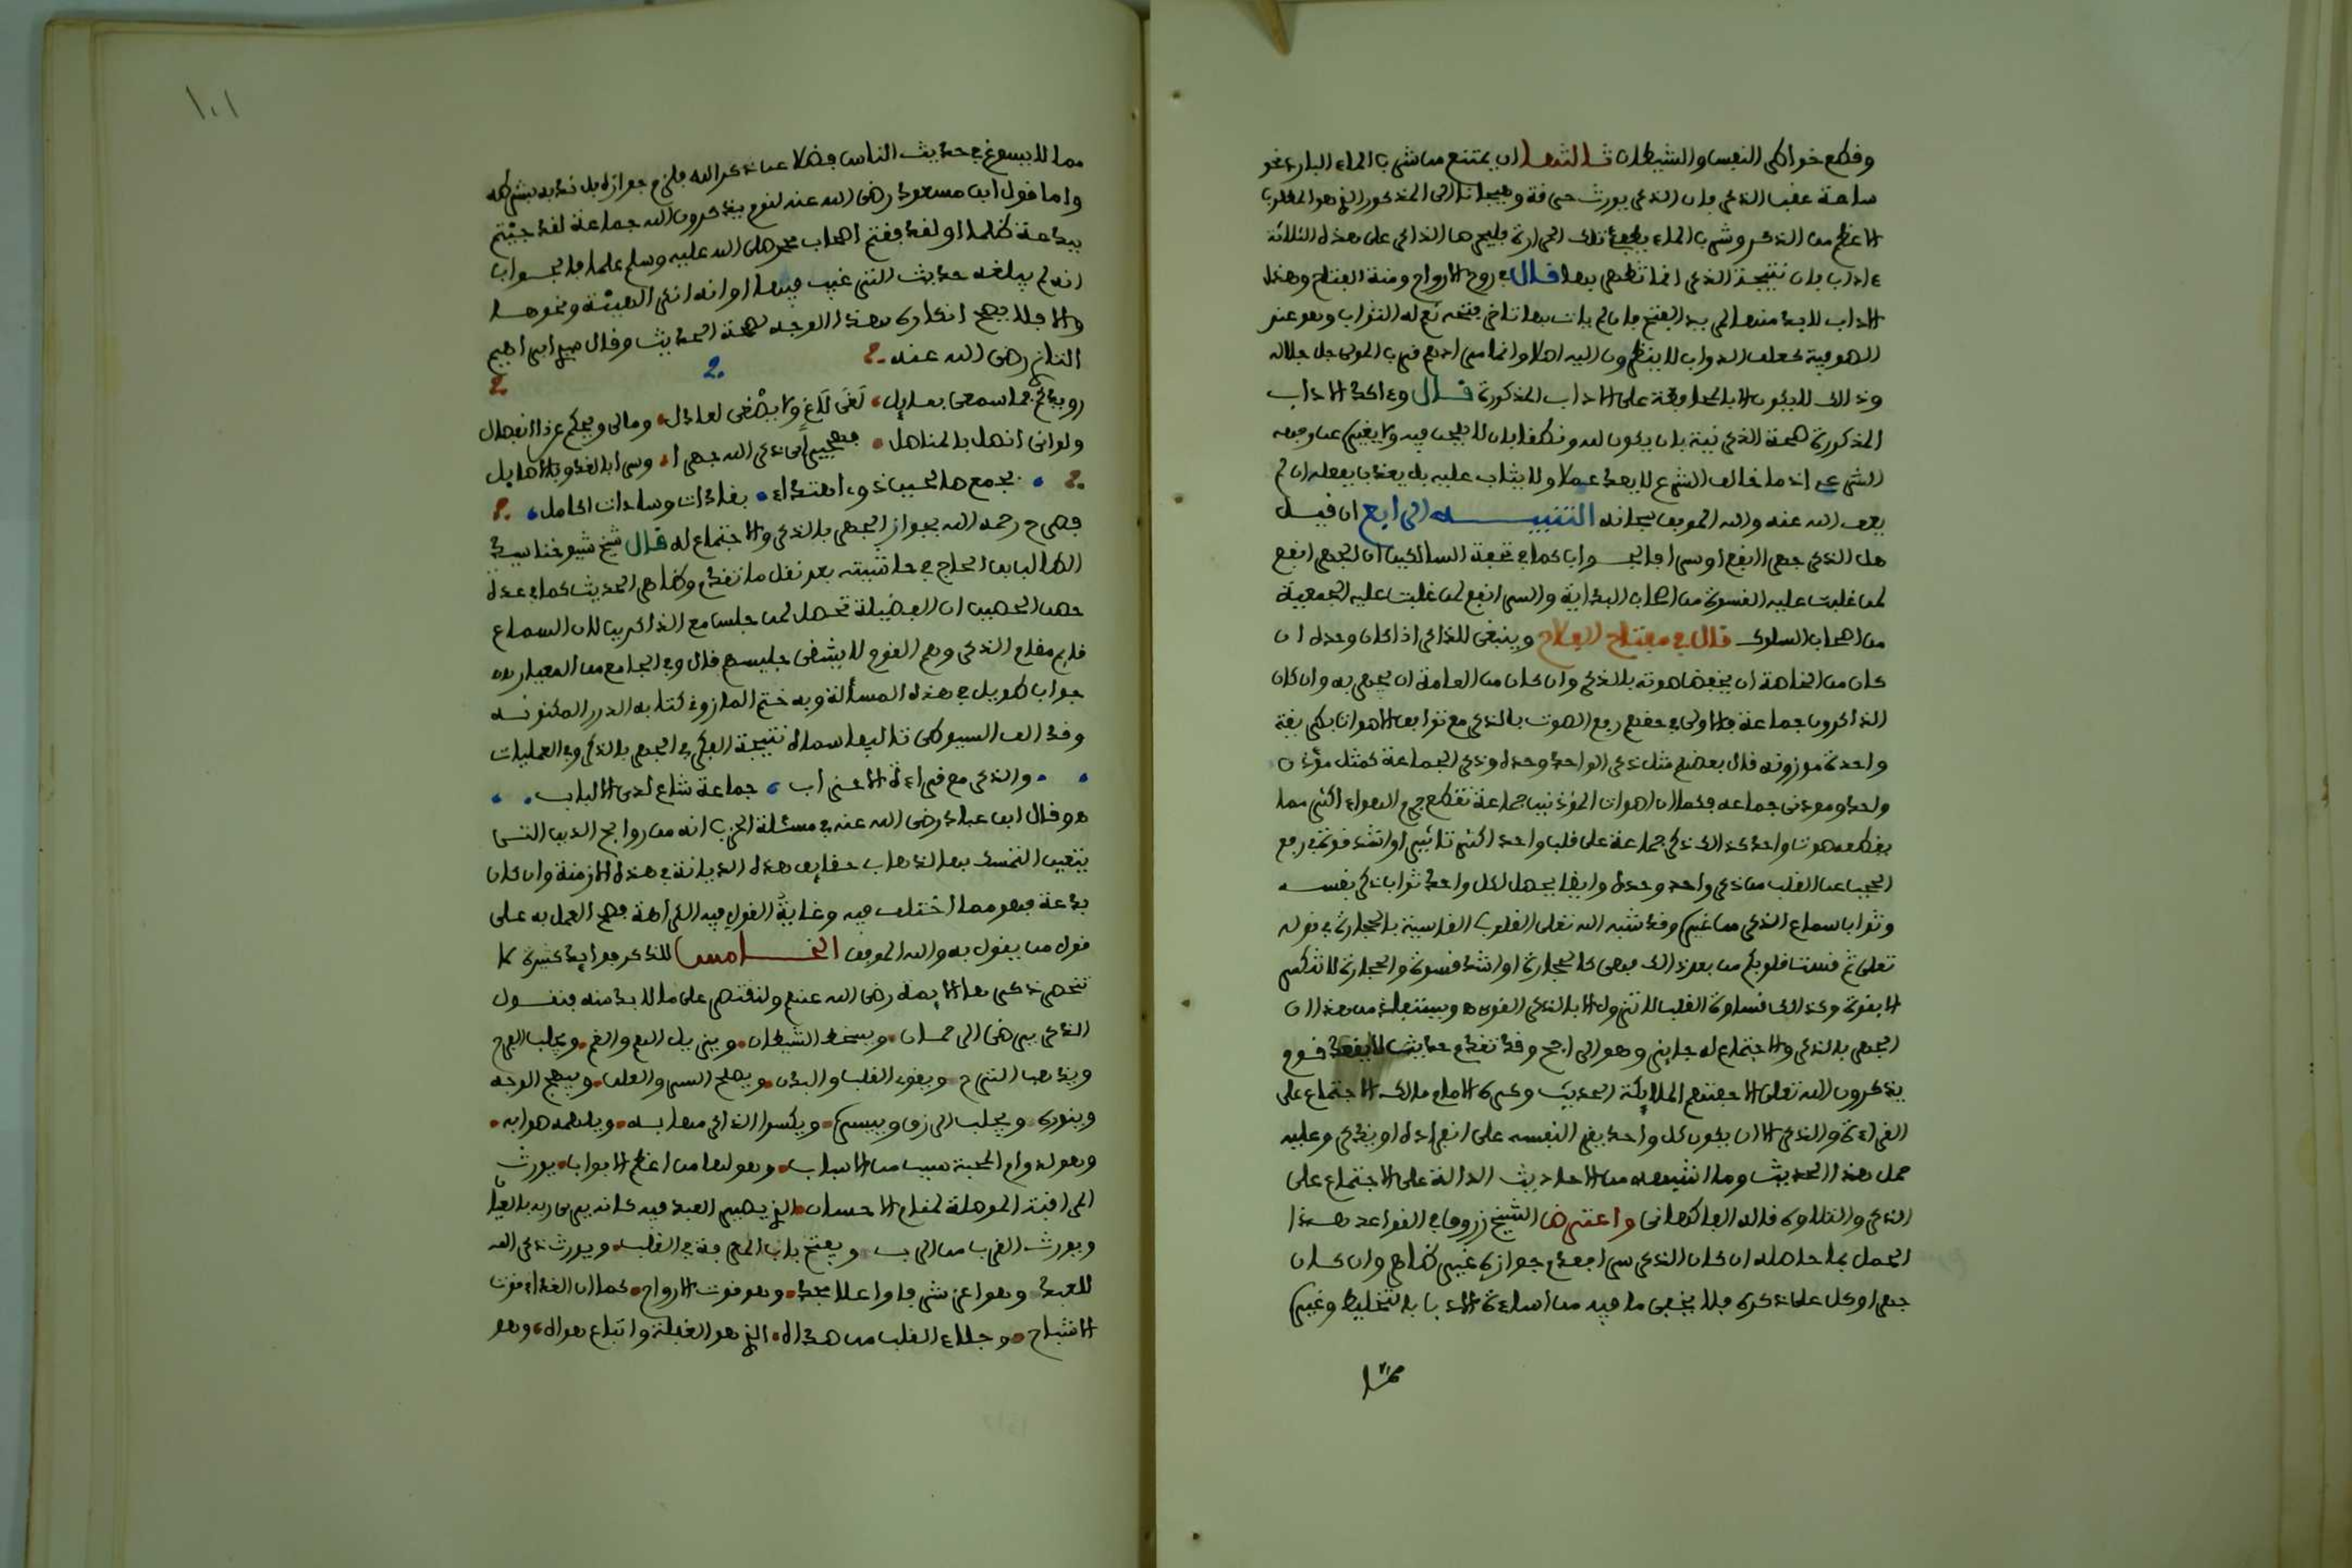 وقطع خواطر النفس والشيطان ثالثها ان يمتنع من شرب الماء البارد نحو
ساعة عقب الذكر فان الذكر يورث حرقة وهيجانا الى المذكور الذي هو المطلوب
الاعظم من الذكر وشرب الماء يطفئ تلك الحرارة فليحرص الذاكر على هذه الثلاثة
ءاداب فان نتيجة الذكر انما تظهر بها قال في روح الارواح ومنة الفتاح وهذه
الاداب لابد منها لمريد الفتح فان لم يات بها تاخر فتحه نعم له الثواب وهو عند
الصوفية كعلف الدواب لا ينظرون اليه اصلا وانما مرادهم قرب المولى جل جلاله
وذلك لا يكون الا بالمحافظة على الاداب المذكورة قال وءاكد الاداب
المذكورة صحة الذكر نية بان يكون لله ونطقا بان لا يلحن فيه ولا يغيره عن وضعه
الشرعي اذ ما خالف الشرع لا يعد عملا ولا يثاب عليه بل يعذب بفعله ان لم
يعف الله عنه والله الموفق سبحانه التنبيه الرابع ان قيل
هل الذكر جهرا انفع او سرا فالجواب كما في تحفة السالكين ان الجهر انفع
لمن غلبت عليه القسوة من اصحاب البداية والسر انفع لمن غلبت عليه الجمعية
من اصحاب السلوك قال في مفتاح الفلاح وينبغي للذاكر اذا كان وحده ان
كان من الخاصة ان يخفض صوته بالذكر وان كان من العامة ان يجهر به وان كان
الذاكرون جماعة فالاولى في حقهم رفع الصوت بالذكر مع توافق الاصوات بطريقة
واحدة موزونة قال بعضهم مثل ذكر الواحد وحده وذكر الجماعة كمثل مؤذن
واحد ومؤذني جماعة فكما ان اصوات المؤذنين جماعة تقطع جرم الهواء اكثر مما
يقطعه صوت واحد كذلك ذكر جماعة على قلب واحد اكثر تاثيرا واشد قوة في رفع
الحجب عن القلب من ذكر واحد وحده وايضا يحصل لكل واحد ثواب ذكر نفسه
وثواب سماع الذكر من غيره وقد شبه الله تعلى القلوب القاسية بالحجارة في قوله
تعلى ثم قست قلوبكم من بعد ذلك فهي كالحجارة او اشد قسوة والحجارة لا تنكسر
الا بقوة وكذلك قساوة القلب لا تزول الا بالذكر القوي ه ويستفاد من هذا ان
الجهر بالذكر والاجتماع له جايز وهو الراجح وقد تقدم حديث لا يقعد قوم
يذكرون الله تعلى الا حفتهم الملايكة الحديث وكره الامام مالك الاجتماع على
القراءة والذكر الا ان يكون كل واحد يقرا لنفسه على انفراده او يذكر وعليه
حمل هذا الحديث وما اشبهه من الاحاديث الدالة على الاجتماع على
الذكر والتلاوة قاله الفاكهاني واعترض الشيخ زروق في القواعد هذا
الحمل بما حاصله ان كان الذكر سرا فعدم جوازه غير ظاهر وان كان
جهرا وكل على ذكره فلا يخفى ما فيه من اساءة الادب بالتخليط وغيره
مما
١٠١
مما لا يسوغ في حديث الناس فضلا عن ذكر الله فلزم جوازه بل ندبه بشرطه
واما قول ابن مسعود رضي الله عنه لقوم يذكرون الله جماعة لقد جئتم
ببدعة ظلما او لقد فقتم اصحاب محمد صلى الله عليه وسلم علما فالجواب
انه لم يبلغه حديث الترغيب فيها او انه انكر الهيئة ونحوها
والا فلا يصح انكاره بهذا الوجه لصحة الحديث وقال سيدي ابراهيم
التازي رضي الله عنه
رويدكم فما سمعي بهايل لغي لاغ ولا يصغى لعاذل ومالي ويحكم عن ذا انفصال
ولو اني انهل بالمناهل فهجيراي ذكر الله جهرا وسرا بالغدو وبالاصايل
بجمع صالحين ذوي اهتداء بغادات وسادات اكامل
فصرح رحمه الله بجواز الجهر بالذكر والاجتماع له قال شيخ شيوخنا سيدي
الطالب ابن الحاج في حاشيته بعد نقل ما تقدم وظاهر الحديث كما في عدة
حصن الحصين ان الفضيلة تحصل لمن جلس مع الذاكرين لان السماع
قايم مقام الذكر وهم القوم لا يشقى جليسهم قال وفي الجامع من المعيار
جواب طويل في هذه المسألة وبه ختم المازوني كتابه الدرر المكنونة
وقد الف السيوطي تاليفا سماه نتيجة الفكر في الجهر بالذكر وفي العمليات
والذكر مع قراءة الاحزاب جماعة شاع لدى الالباب
ه وقال ابن عباد رضي الله عنه في مسئلة الحزب انه من روايح الدين التي
يتعين التمسك بها لذهاب حقايق هذه الديانة في هذه الازمنة وان كان
بدعة فهو مما اختلف فيه وغاية القول فيه الكراهة فصح العمل به على
قول من يقول به والله الموفق الخامس للذكر فوايد كثيرة لا
تنحصر ذكر بها الايمة رضي الله عنهم ولنقتصر على ما لابد منه فنقول
الذكر يرضي الرحمان ويسخط الشيطان ويزيل الهم والغم ويجلب الفرح
ويذهب الترح ويقوي القلب والبدن ويصلح السر والعلن ويبهج الوجه
وينوره ويجلب الرزق وييسره ويكسوا الذاكر مهابه ويلهمه صوابه
وهو لدوام المحبة سبب من الاسباب وهو لها من اعظم الابواب يورث
المراقبة الموصلة لمقام الاحسان الذي يصير العبد فيه كانه يرى ربه بالعيان
ويورث القرب من الرب ويفتح باب المعرفة في القلب ويورث ذكر الله
للعبد وهو اعز شرفا واعلا مجد وهو قوت الارواح كما ان الغذاء قوت
الاشباح وجلاء القلب من صداه الذي هو الغفلة واتباع هواه وهو